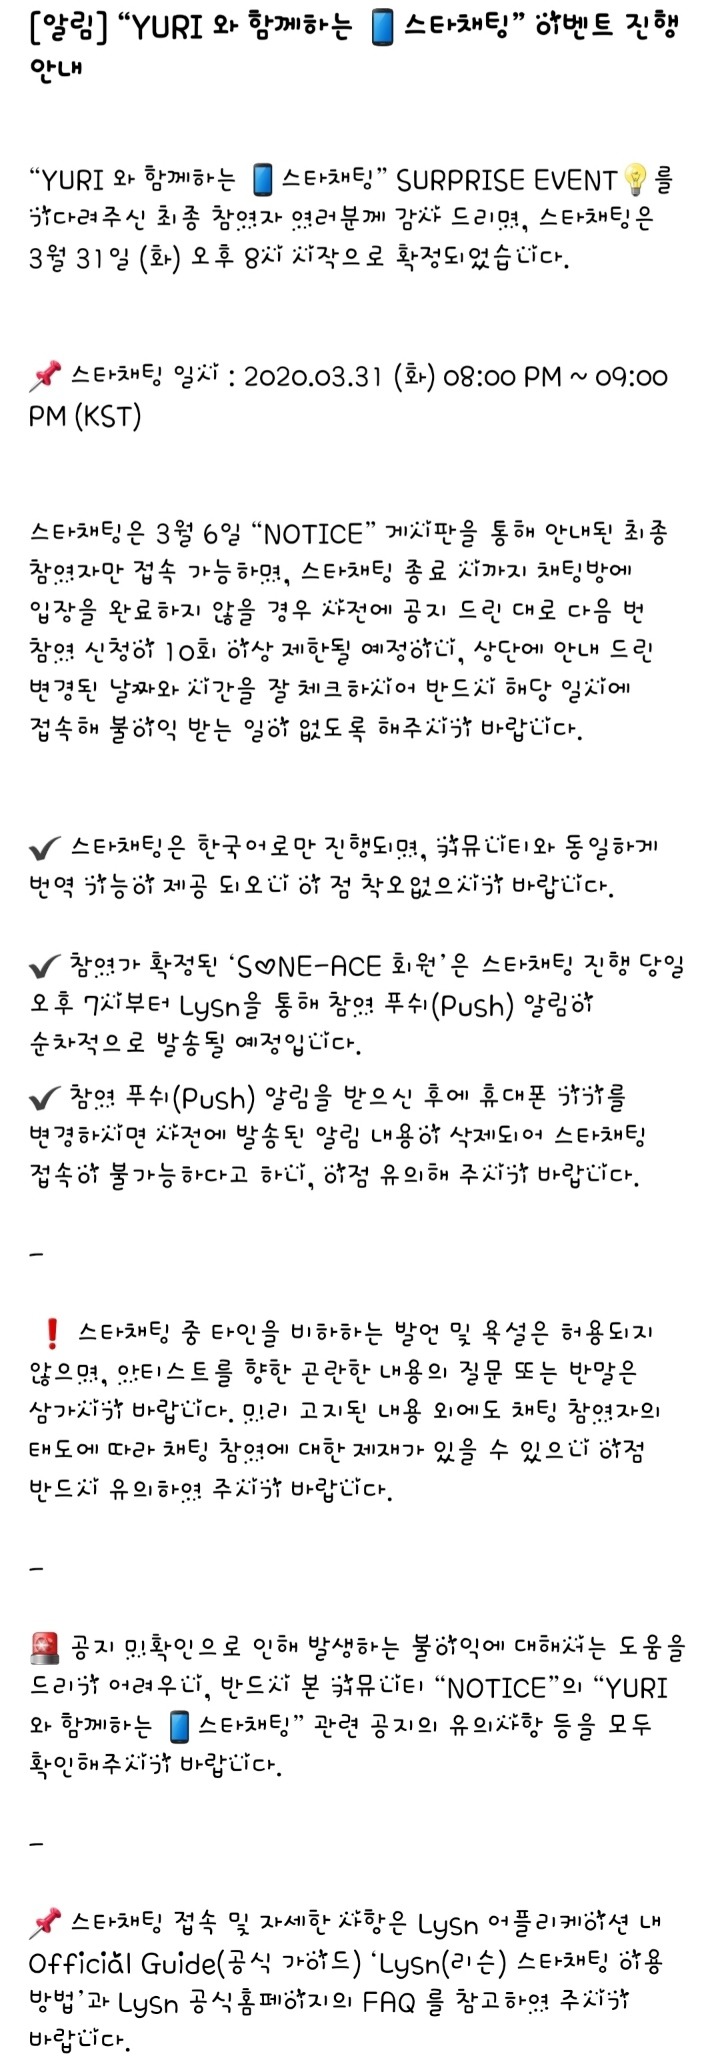 [알림] “YURI 와 함께하는 📱스타채팅” 이벤트 진행
안내
“YURI 와 함께하는 📱스타채팅” SURPRISE EVENT💡를
기다려주신 최종 참여자 여러분께 감사 드리며, 스타채팅은
3월 31일 (화) 오후 8시 시작으로 확정되었습니다.
📌 스타채팅 일시 : 2020.03.31 (화) 08:00 PM ~ 09:00
PM (KST)
스타채팅은 3월 6일 “NOTICE” 게시판을 통해 안내된 최종
참여자만 접속 가능하며, 스타채팅 종료 시까지 채팅방에
입장을 완료하지 않을 경우 사전에 공지 드린 대로 다음 번
참여 신청이 10회 이상 제한될 예정이니, 상단에 안내 드린
변경된 날짜와 시간을 잘 체크하시어 반드시 해당 일시에
접속해 불이익 받는 일이 없도록 해주시기 바랍니다.
✔ 스타채팅은 한국어로만 진행되며, 커뮤니티와 동일하게
번역 기능이 제공 되오니 이 점 착오없으시기 바랍니다.
✔ 참여가 확정된 ‘S♡NE-ACE 회원’은 스타채팅 진행 당일
오후 7시부터 Lysn을 통해 참여 푸쉬(Push) 알림이
순차적으로 발송될 예정입니다.
✔ 참여 푸쉬(Push) 알림을 받으신 후에 휴대폰 기기를
변경하시면 사전에 발송된 알림 내용이 삭제되어 스타채팅
접속이 불가능하다고 하니, 이점 유의해 주시기 바랍니다.
-
❗ 스타채팅 중 타인을 비하하는 발언 및 욕설은 허용되지
않으며, 아티스트를 향한 곤란한 내용의 질문 또는 반말은
삼가시기 바랍니다. 미리 고지된 내용 외에도 채팅 참여자의
태도에 따라 채팅 참여에 대한 제재가 있을 수 있으니 이점
반드시 유의하여 주시기 바랍니다.
-
🚨 공지 미확인으로 인해 발생하는 불이익에 대해서는 도움을
드리기 어려우니, 반드시 본 커뮤니티 “NOTICE”의 “YURI
와 함께하는 📱스타채팅” 관련 공지의 유의사항 등을 모두
확인해주시기 바랍니다.
-
📌 스타채팅 접속 및 자세한 사항은 Lysn 어플리케이션 내
Official Guide(공식 가이드) ‘Lysn(리슨) 스타채팅 이용
방법’과 Lysn 공식홈페이지의 FAQ 를 참고하여 주시기
바랍니다.